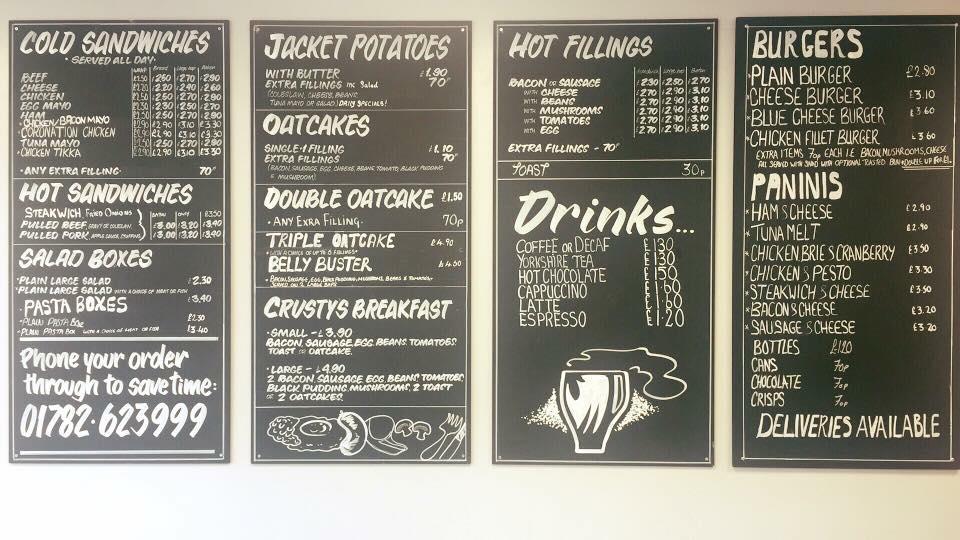 COLD SANDWICHES
• SERVED ALL DAY •
Bread Large bap Baton
BEEF £2.50 £2.50 £2.70 £2.90
CHEESE £2.20 £2.40 £2.60
CHICKEN £2.50 £2.70 £2.90
EGG MAYO £2.30 £2.50 £2.70
HAM £2.50 £2.70 £2.90
• CHICKEN/BACON MAYO £2.90 £3.10 £3.30
• CORONATION CHICKEN £2.90 £3.10 £3.30
TUNA MAYO £2.50 £2.70 £2.90
• CHICKEN TIKKA £2.90 £3.10 £3.30
• ANY EXTRA FILLING • 70P
HOT SANDWICHES
STEAKWICH Fried Onions £3.50
PULLED BEEF, GRAVY OR COLESLAW. £3.00 £3.20 £3.40
PULLED PORK, APPLE SAUCE, STUFFING £3.00 £3.20 £3.40
SALAD BOXES
• PLAIN LARGE SALAD £2.30
• PLAIN LARGE SALAD WITH A CHOICE OF MEAT OR FISH £3.40
PASTA BOXES
• PLAIN PASTA BOX £2.30
• PLAIN PASTA BOX WITH A CHOICE OF MEAT OR FISH £3.40
Phone your order
through to save time:
01782•623999
JACKET POTATOES
WITH BUTTER £1.90
EXTRA FILLINGS inc Salad 70P
(COLESLAW, CHEESE, BEANS,
TUNA MAYO OR SALAD) DAILY SPECIALS!
OATCAKES
SINGLE•1 FILLING £1.10
EXTRA FILLINGS 70P
(BACON, SAUSAGE, EGG, CHEESE, BEANS, TOMATO, BLACK PUDDING
& MUSHROOM)
DOUBLE OATCAKE £1.50
• ANY EXRA FILLING • 70p
TRIPLE OATCAKE £4.90
• WITH A CHOICE OF UP TO 5 FILLINGS •
BELLY BUSTER £4.50
• BACON, SAUSAGE, EGG, BLACK PUDDING, MUSHROOMS, BEANS & TOMATOES•
SERVED ON 2 LARGE BAPS
CRUSTYS BREAKFAST
• SMALL - £3.90
BACON, SAUSAGE, EGG, BEANS, TOMATOES
TOAST OR OATCAKE.
• LARGE - £4.90
2 BACON, SAUSAGE, EGG, BEANS, TOMATOES
BLACK PUDDING, MUSHROOMS, 2 TOAST
OR 2 OATCAKES.
HOT FILLINGS
Sandwich Large bap Baton
BACON OR SAUSAGE £2.30 £2.50 £2.70
WITH CHEESE £2.70 £2.90 £3.10
WITH BEANS £2.70 £2.90 £3.10
WITH MUSHROOMS £2.70 £2.90 £3.10
WITH TOMATOES £2.70 £2.90 £3.10
WITH EGG £2.70 £2.90 £3.10
EXTRA FILLINGS - 70P
TOAST 30p
Drinks...
COFFEE OR DECAF £1.30
YORKSHIRE TEA £1.30
HOT CHOCOLATE £1.50
CAPPUCCINO £1.60
LATTE £1.60
ESPRESSO £1.20
BURGERS
• PLAIN BURGER £2.80
• CHEESE BURGER £3.10
• BLUE CHEESE BURGER £3.60
• CHICKEN FILLET BURGER £3.60
EXTRA ITEMS 70p EACH I.E BACON, MUSHROOMS, CHEESE
ALL SERVED WITH SALAD WITH OPTIONAL TOASTED BUN • DOUBLE UP FOR £1.
PANINIS
• HAM & CHEESE £2.90
• TUNA MELT £2.90
• CHICKEN BRIE & CRANBERRY £3.50
• CHICKEN & PESTO £3.30
• STEAKWICH & CHEESE £3.50
• BACON & CHEESE £3.20
• SAUSAGE & CHEESE £3.20
BOTTLES £1.20
CANS 70p
CHOCOLATE 70p
CRISPS 70p
DELIVERIES AVAILABLE